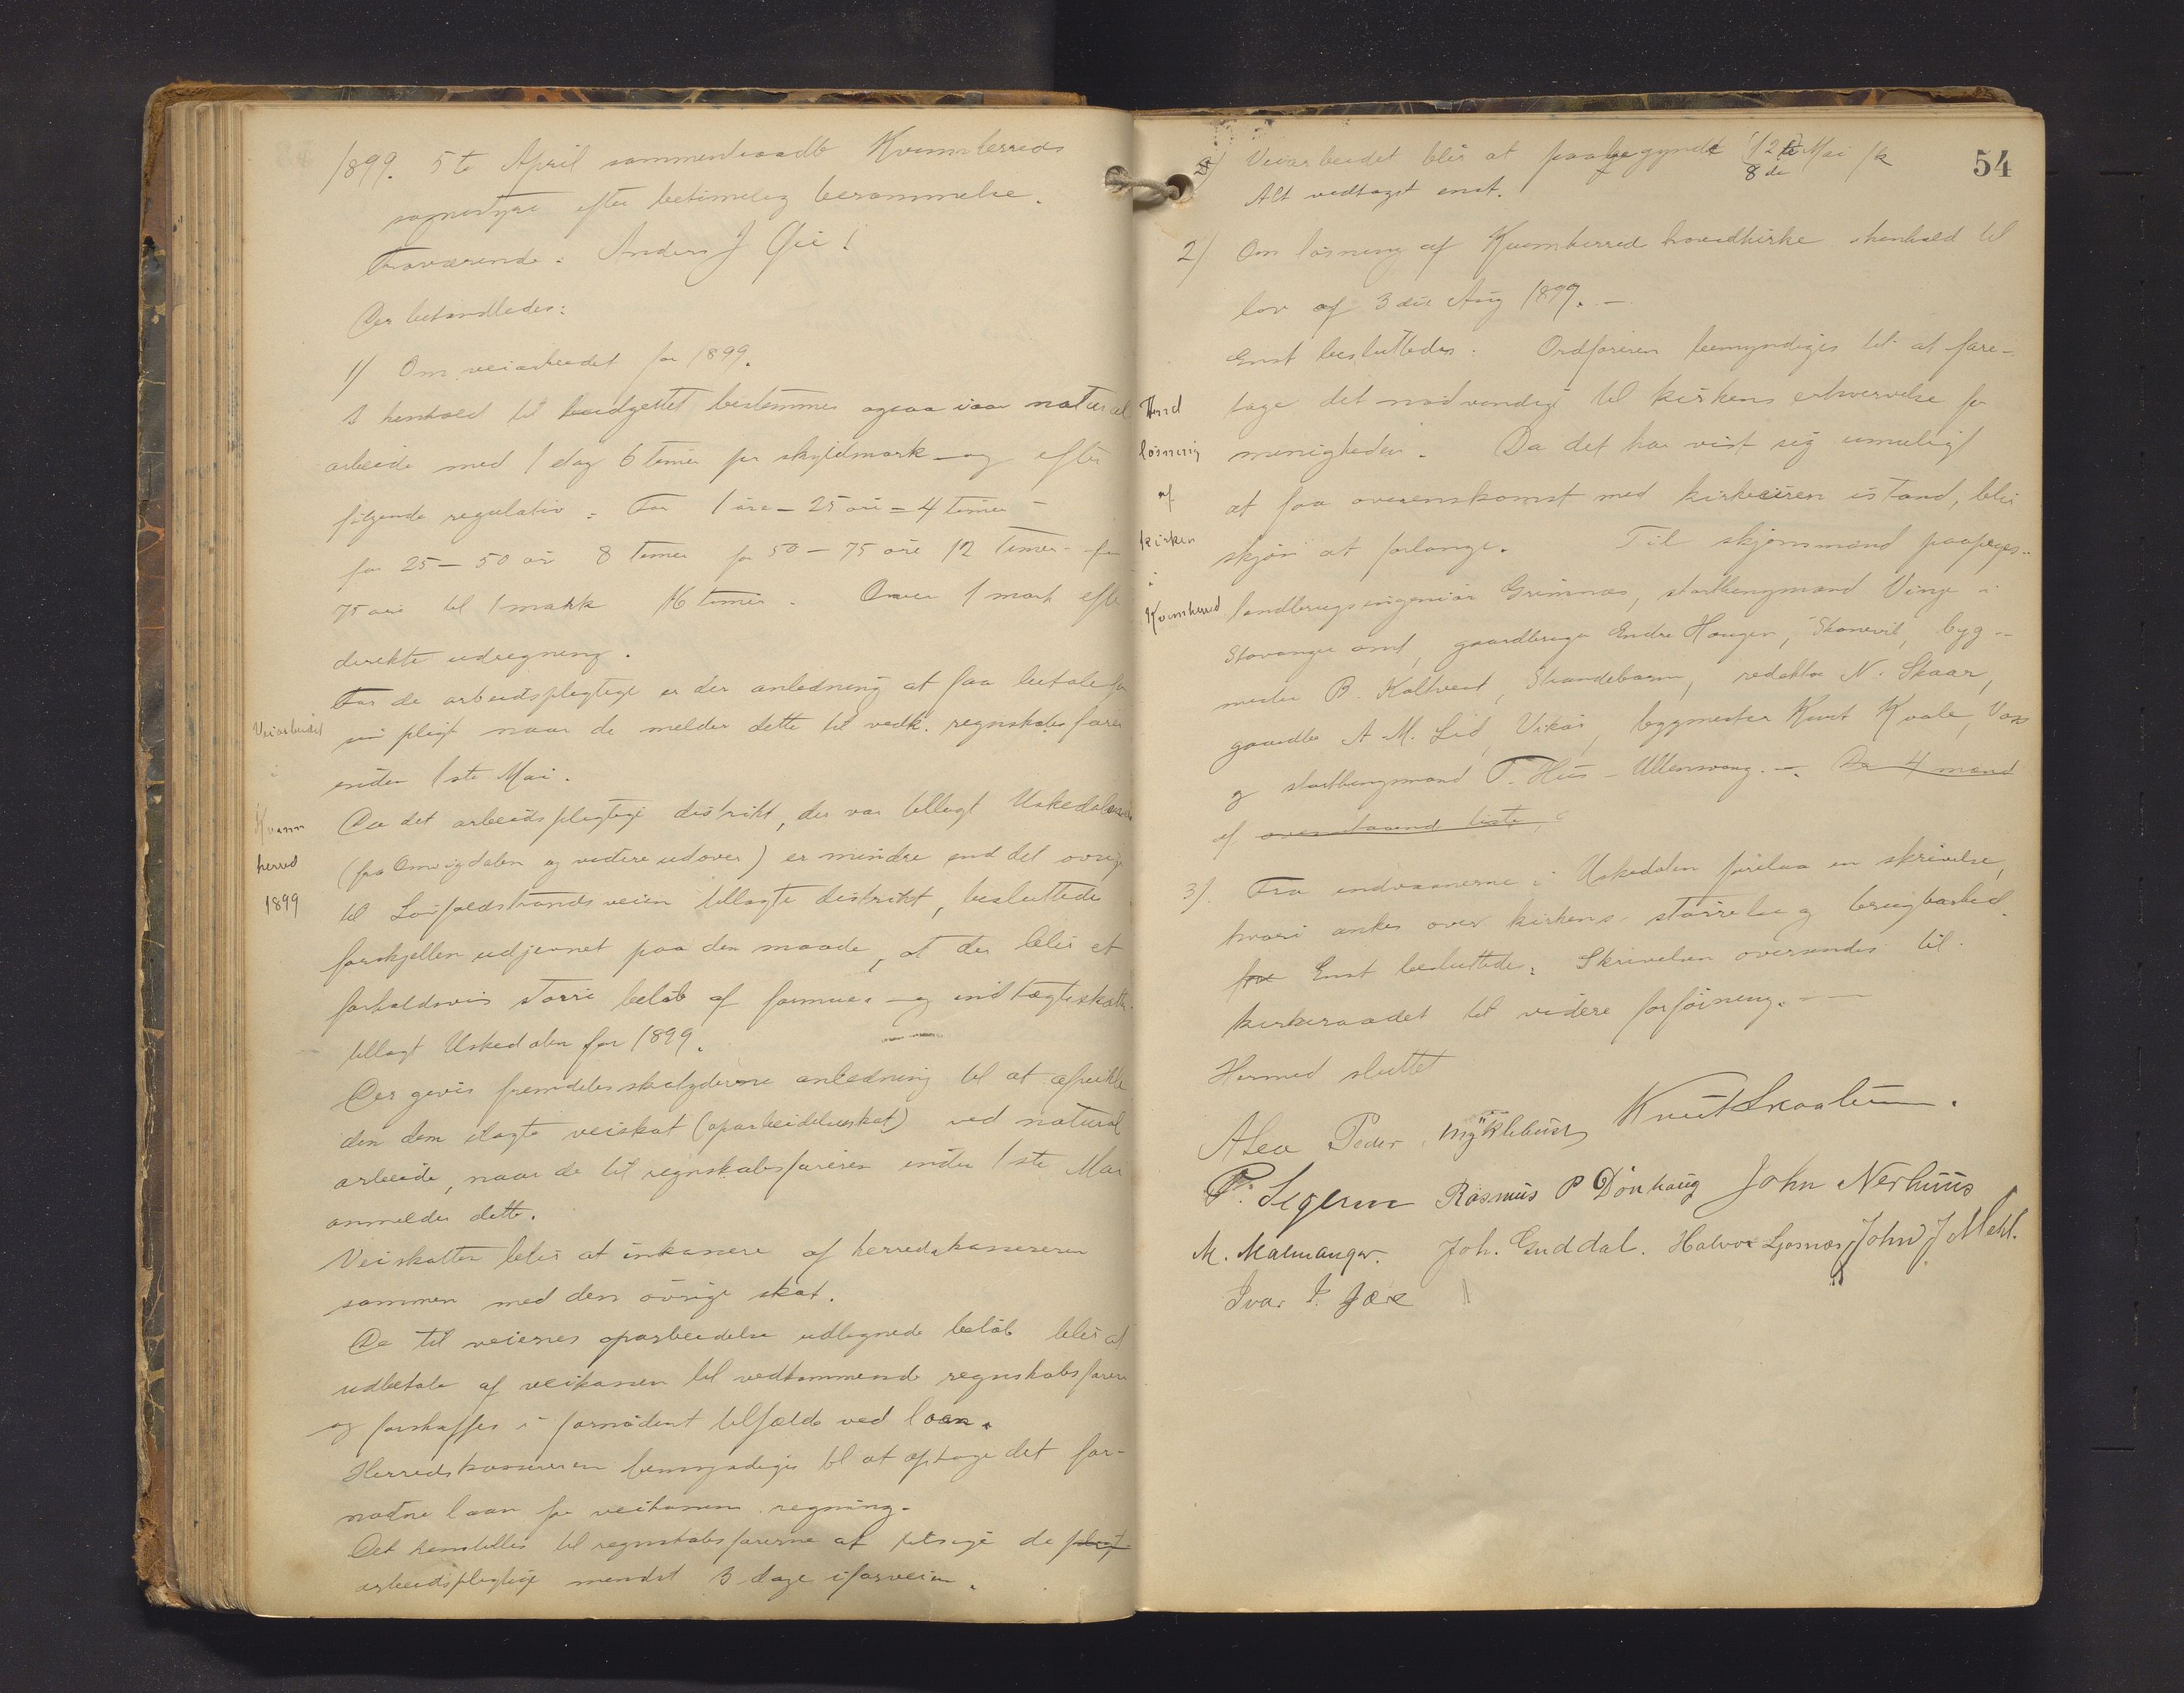 1899. 5te April sammentraadte Kvinnherreds
sognestyre efter betimelig berammelse.
Fraværende: Anders J Øie!
Der behandledes:
1) Om veiarbeidet for 1899.
I henhold til budgettet bestemmes ogsaa iaar natural
arbeide med 1 dag 6 timer pr skyldmark og efter
følgende regulativ: For 1 øre – 25 øre = 4 timer –
for 25 – 50 ør 8 timer for 50 – 75 øre 12 timer – for
75 øre til 1 mark 16 timer. Over 1 mark efter
direkte udregning.
For de arbeidspligtige er der anledning at faa betale for
sin pligt naar de melder dette til vedk. regnskabsfører
inden 1ste Mai.
Veiarbeidet
i
Kvinn
herred
1899
Da det arbeidspligtige distrikt, der var tillagt Uskedalsveien
(fra Omvigdalen og videre udover) er mindre end det øvrige
til Løifaldstrandsveien tillagte distrikt, besluttedes
forskjellen udjevnet paa den maade, at der blir et
forholdsvis større beløb af formues – og indtægtsskatten
tillagt Uskedalen for 1899.
Der gives fremdeles skatyderne anledning til at afvikle
den dem ilagte veiskat (oparbeidelsesskat) ved natural
arbeide, naar de til regnskabsføreren inden 1ste Mai
anmelder dette.
Veiskatten blir at inkassere af herredskassereren
sammen med den øvrige skat.
De til veienes oparbeidelse udlignede beløb blir at
udbetale af veikassen til vedkommende regnskabsfører
og forskaffes i fornødent tilfælde ved laan.
Herredskassereren bemyndiges til at optage det for-
nødne laan for veikassens regning.
Det henstilles til regnskabsførerne at tilsige de pligt
arbeidspligtige mindst 3 dage iforveien.
54
Veiarbeidet blir at paabegynde 12te Mai
8de
Alt vedtaget enst.
2) Om løsning af Kvinnherred hovedkirke i henhold til
lov af 3die Aug 1897. –
Enst besluttedes: Ordføreren bemyndiges til at fore-
tage det nødvendige til kirkens erhvervelse for
menigheden. Da det har vist sig umuligt
at faa overenskomst med kirkeeieren istand, blir
skjøn at forlange. Til skjønsmænd paapeges
landbrugsingeniør Grimnæs, storthingsmand Vinje i
Stavanger amt, gaardbruger Endre Haugen, Skonevik, byg-
mester B. Kaltveit, Strandebarm, redaktør N. Skaar,
gaardbr A. M. Lid, Vikør, bygmester Knut Kvale, Voss
og storthingsmand T. Hus – Ullensvang. – De 4 mænd
af ovenstaaend liste,
Herred
løsning
af
kirken
i
Kvinnherred
3). Fra indvaanerne i Uskedalen forelaa en skrivelse,
hvori ankes over kirkens størrelse og brugbarhed.
for Enst besluttede: Skrivelsen oversendes til
kirkeraadet til videre forføining. –
Hermed sluttet
Peder Myklebust Knut Skaalum.
Rasmus P Dønhaug John Nerhuus
M. Malmanger. Joh. Guddal. Halvor Ljosnæs John J Mehl.
Ivar